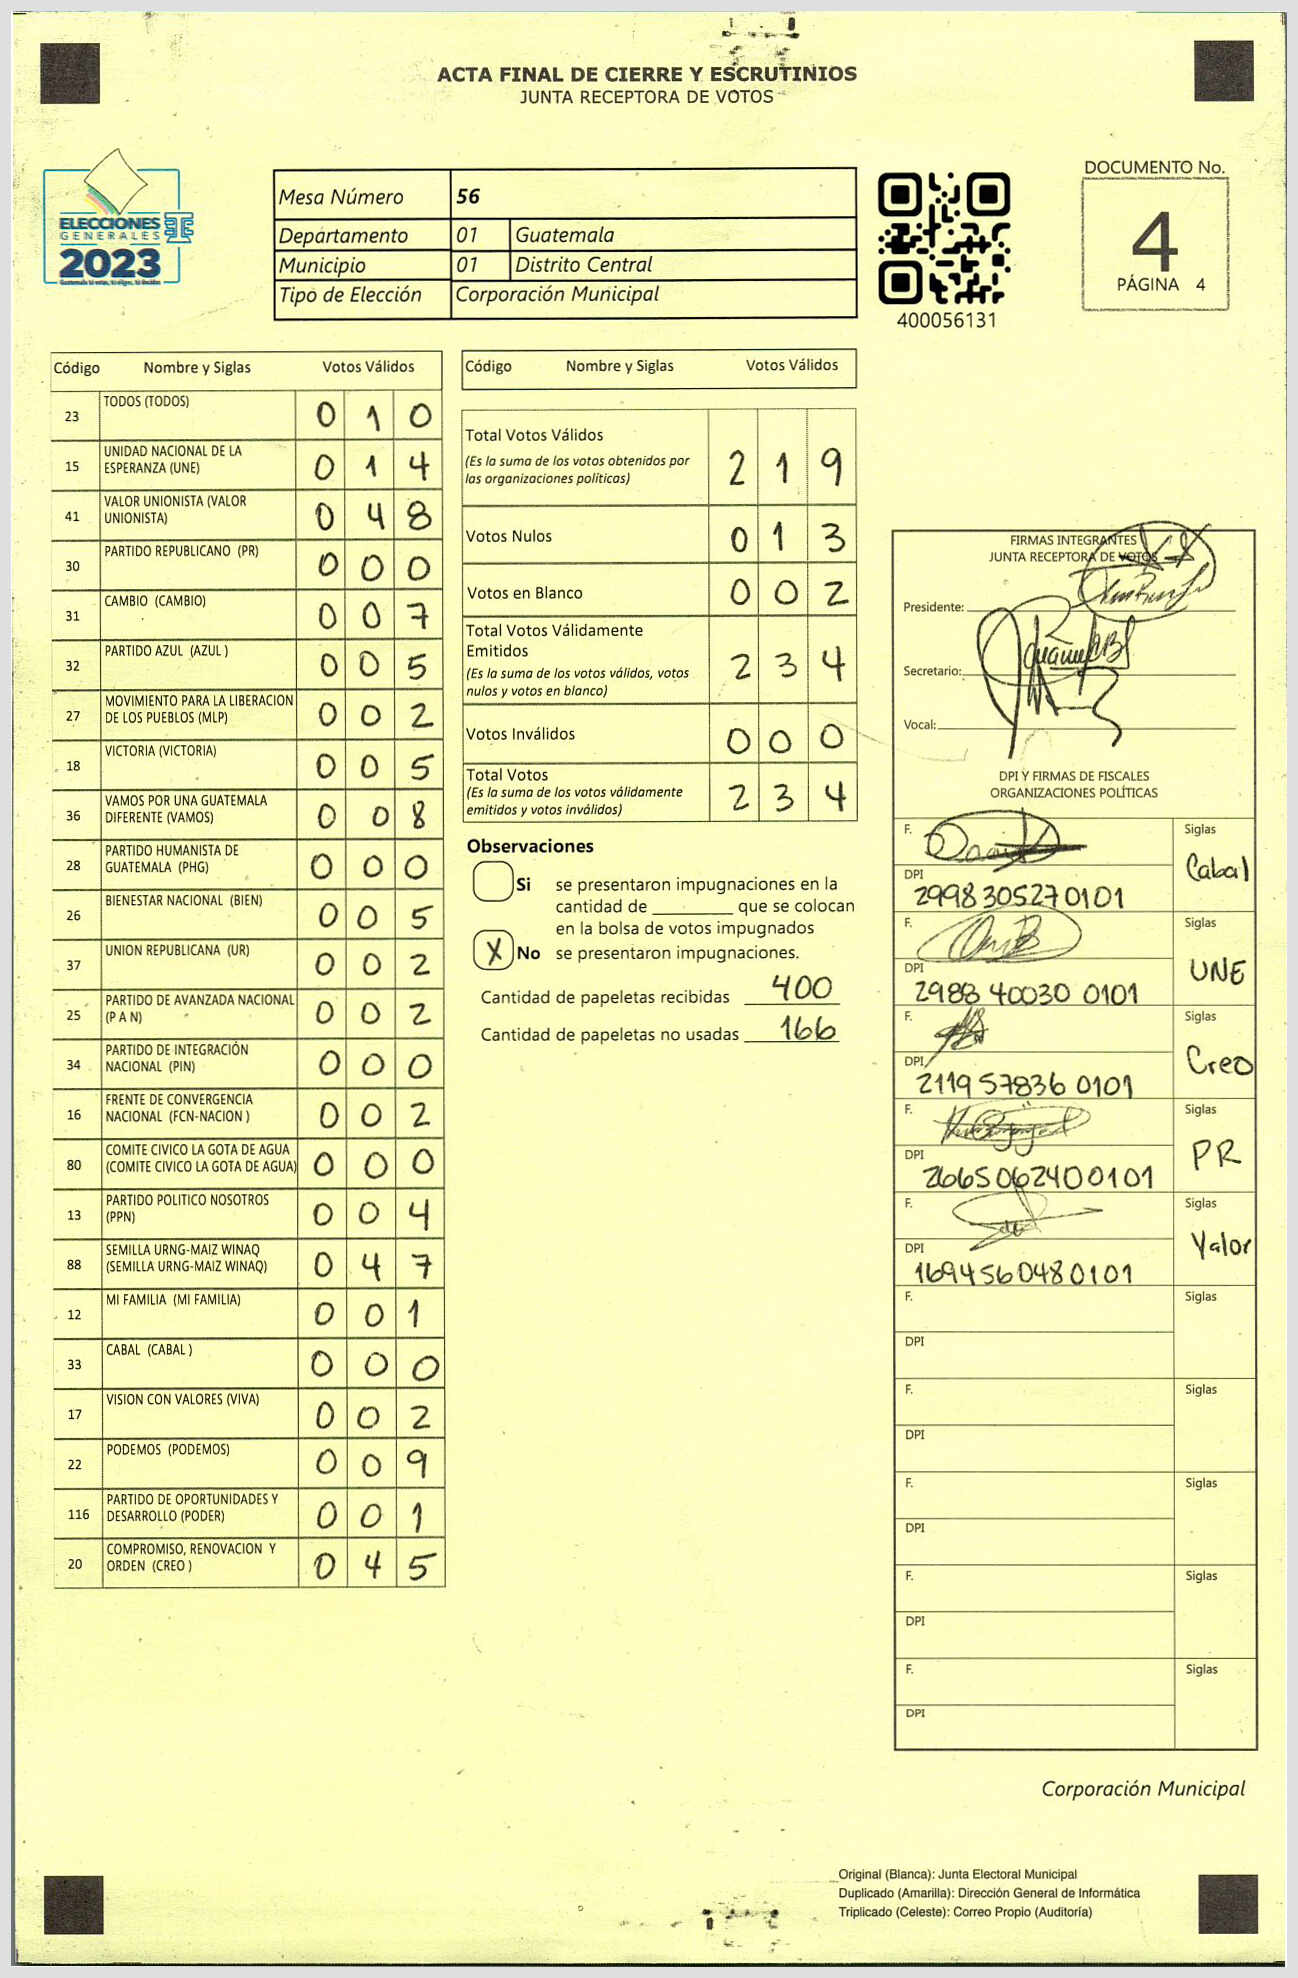 ACTA FINAL DE CIERRE Y ESCRUTINIOS
JUNTA RECEPTORA DE VOTOS
ELECCIONES
GENERALES
2023
Mesa Número 56
Departamento 01 Guatemala
Municipio 01 Distrito Central
Tipo de Elección Corporación Municipal
400056131
DOCUMENTO No.
4
PÁGINA 4
Código Nombre y Siglas Votos Válidos
23 TODOS (TODOS) 0 1 0
15 UNIDAD NACIONAL DE LA
ESPERANZA (UNE) 0 1 4
41 VALOR UNIONISTA (VALOR
UNIONISTA) 0 4 8
30 PARTIDO REPUBLICANO (PR) 0 0 0
31 CAMBIO (CAMBIO) 0 0 7
32 PARTIDO AZUL (AZUL ) 0 0 5
27 MOVIMIENTO PARA LA LIBERACION
DE LOS PUEBLOS (MLP) 0 0 2
18 VICTORIA (VICTORIA) 0 0 5
36 VAMOS POR UNA GUATEMALA
DIFERENTE (VAMOS) 0 0 8
28 PARTIDO HUMANISTA DE
GUATEMALA (PHG) 0 0 0
26 BIENESTAR NACIONAL (BIEN) 0 0 5
37 UNION REPUBLICANA (UR) 0 0 2
25 PARTIDO DE AVANZADA NACIONAL
(P A N) 0 0 2
34 PARTIDO DE INTEGRACIÓN
NACIONAL (PIN) 0 0 0
16 FRENTE DE CONVERGENCIA
NACIONAL (FCN-NACION ) 0 0 2
80 COMITE CIVICO LA GOTA DE AGUA
(COMITE CIVICO LA GOTA DE AGUA) 0 0 0
13 PARTIDO POLITICO NOSOTROS
(PPN) 0 0 4
88 SEMILLA URNG-MAIZ WINAQ
(SEMILLA URNG-MAIZ WINAQ) 0 4 7
12 MI FAMILIA (MI FAMILIA) 0 0 1
33 CABAL (CABAL ) 0 0 0
17 VISION CON VALORES (VIVA) 0 0 2
22 PODEMOS (PODEMOS) 0 0 9
116 PARTIDO DE OPORTUNIDADES Y
DESARROLLO (PODER) 0 0 1
20 COMPROMISO, RENOVACION Y
ORDEN (CREO ) 0 4 5
Código Nombre y Siglas Votos Válidos
Total Votos Válidos
(Es la suma de los votos obtenidos por
las organizaciones políticas) 2 1 9
Votos Nulos 0 1 3
Votos en Blanco 0 0 2
Total Votos Válidamente
Emitidos
(Es la suma de los votos válidos, votos
nulos y votos en blanco) 2 3 4
Votos Inválidos 0 0 0
Total Votos
(Es la suma de los votos válidamente
emitidos y votos inválidos) 2 3 4
Observaciones
Si se presentaron impugnaciones en la
cantidad de _________ que se colocan
en la bolsa de votos impugnados
X No se presentaron impugnaciones.
Cantidad de papeletas recibidas 400
Cantidad de papeletas no usadas 166
FIRMAS INTEGRANTES
JUNTA RECEPTORA DE VOTOS
Presidente:
Secretario:
Vocal:
DPI Y FIRMAS DE FISCALES
ORGANIZACIONES POLÍTICAS
F. Siglas
Cabal
DPI
2998305270101
F. Siglas
UNE
DPI
2988 40030 0101
F. Siglas
Creo
DPI
2119 57836 0101
F. Siglas
PR
DPI
2665062400101
F. Siglas
Valor
DPI
1694560480101
F. Siglas
DPI
F. Siglas
DPI
F. Siglas
DPI
F. Siglas
DPI
F. Siglas
DPI
Corporación Municipal
Original (Blanca): Junta Electoral Municipal
Duplicado (Amarilla): Dirección General de Informática
Triplicado (Celeste): Correo Propio (Auditoría)